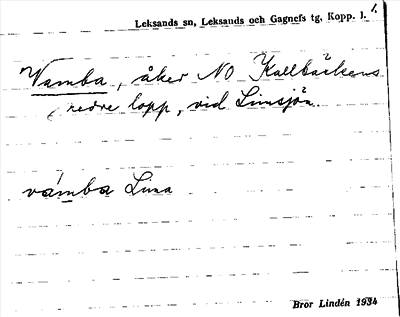 Leksands sn, Leksands och Gagnefs tg, Kopp. l. 1.
Vamba, åker NO Kallbäckens
nedre lopp, vid Limsjön.
vámba Lima
Bror Lindén 1934